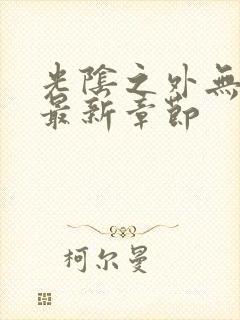 光陰之外無
最新章節
柯尔曼